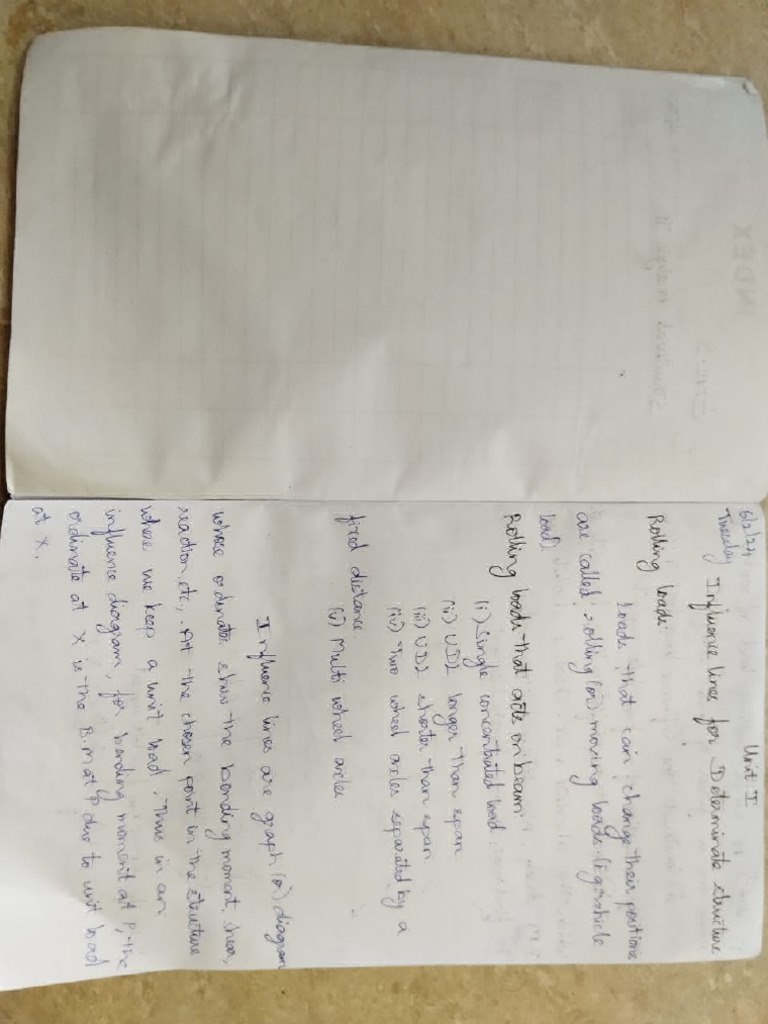 6/2/24
Tuesday
Unit I
Influence lines for Determinate structure
Rolling loads:
Loads that can change their positions
are called rolling (or) moving loads. (Eg: vehicle
load)
Rolling loads that acts on beam:
(i) Single concentrated load
(ii) UDL longer than span
(iii) UDL shorter than span
(iv) Two wheel axles separated by a
fixed distance
(v) Multi wheel axles
Influence lines are graph (or) diagram
whose ordinates show the bending moment, shear,
reaction, etc,. At the chosen point in the structure
where we keep a unit load. Thus in an
influence diagram, for bending moment at P, the
ordinate at X is the B.M at P due to unit load
at X.
INDEX